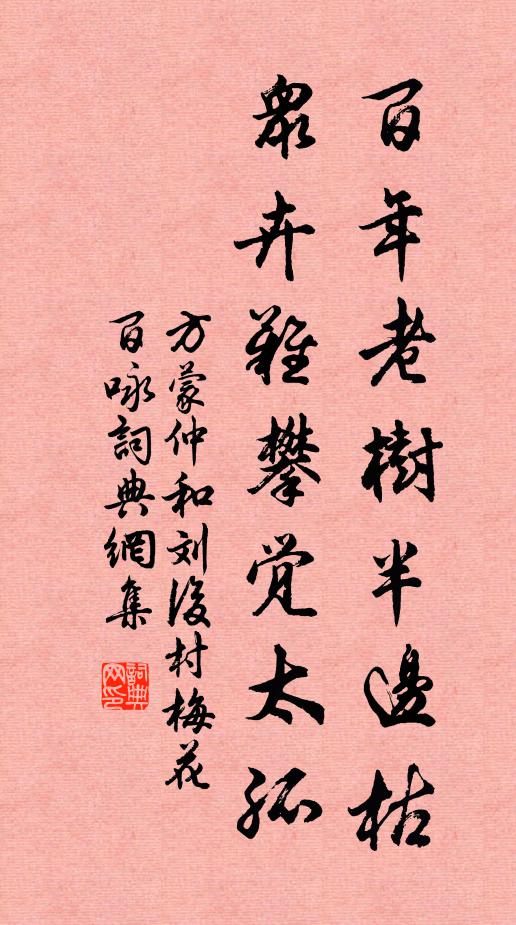 百年老樹半邊枯
眾卉難攀觉太孤
方蒙仲和刘後村梅花
百咏詞典網集
詞典网印